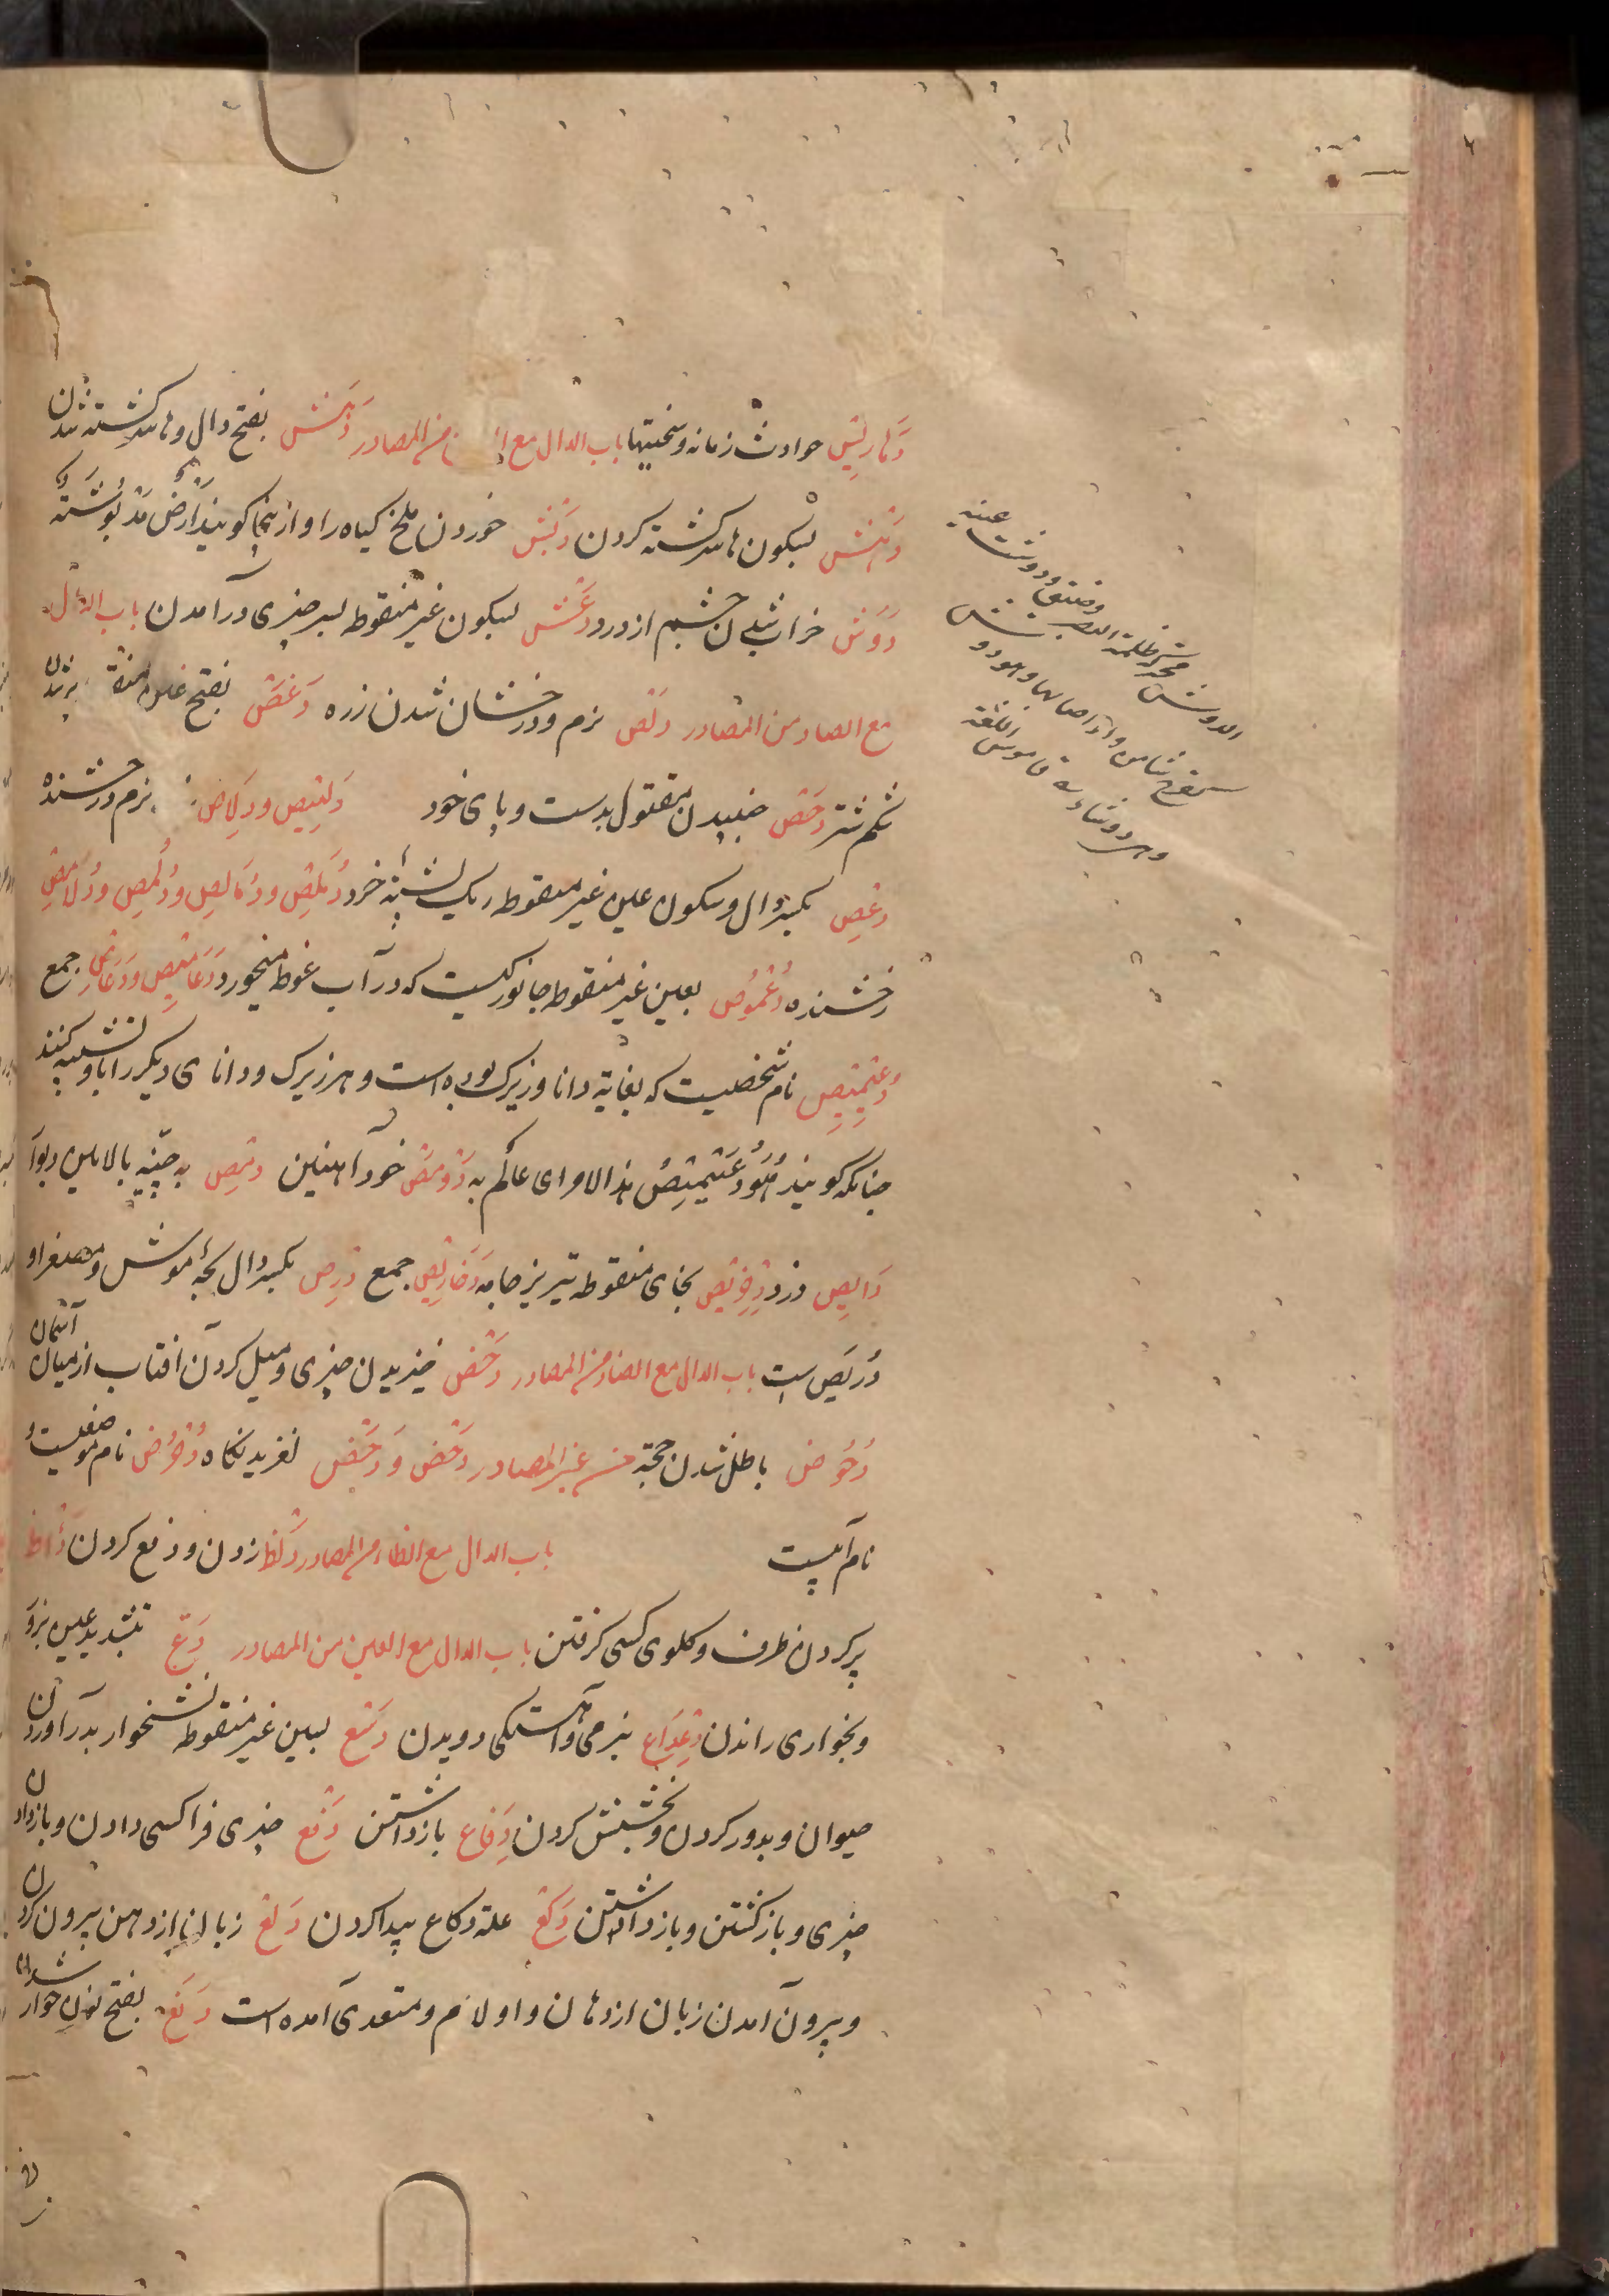 دَهاریس حوادث زمانه و سختیها باب الدال مع من المصادر دَهَش بفتح دال و ها سرگشته شدن
دَهْش بسکون ها سرگشته کردن دَبْش خوردن ملخ گیاه را و از ینجا گویند اَرْضٌ مَدْبُوشَةٌ
دَوَش خراب شدن چشم از درد دَعْش بسکون غیر منقوطه بسر چیزی در آمدن باب الدال
مع الصاد من المصادر دَلَص نرم و درخشان شدن زره دَغَص بفتح غین پر شدن
شکم شتر دَحْص جنبیدن مقتول بدست و پای خود دَلیص و دِلاص نرم درخشنده
دِعْص بکسر دال و سکون عین غیر منقوطه ریک پشتهٔ خرد دُمَلِص و دُمالِص و دُلَمِص و دُلامِص
رخشنده دُعْمُوص بعین غیر منقوطه جانورکیست که در آب غوطه میخورد دَعامیص و دَعامِص جمع
دُعَیْمیص نام شخصیست که بغایة دانا و زیرک بوده است و هر زیرک و دانای دیگر را باو تشبیه کنند
چنانکه گویند هُوَ دُعَیْمیصُ هذا الامر ای عالم به دَوْمَص خود آهنین دِمْص به چینهٔ بالایین دیوار
دایص دزد دِخْریص بخای منقوطه تیریز جامه دَخاریص جمع دِرْص بکسر دال بچهٔ موش و مصغر او
دُرَیْص است باب الدال مع الضاد من المصادر دَحْض لغزیدن چیزی و میل کردن آفتاب از میان آسمان
دُحُوض باطل شدن حجة من غیر المصادر دَحْض و دَحَض لغزیدنگاه دُحْرُض نام موضعیست
نام آبیست باب الدال مع الظاء من المصادر دَلْظ زدن و دفع کردن دَأْظ
پر کردن ظرف و گلوی کسی گرفتن باب الدال مع العین من المصادر دَعّ بتشدید عین بزور
و بخواری راندن دَعْداع بنرمی و آهستگی دویدن دَسْع بسین غیر منقوطه نشخوار بدر آوردن
حیوان و بدور کردن و بخشش کردن دِفاع بازداشتن دَفْع چیزی فرا کسی دادن و باز دادن
چیزی و باز گشتن و باز داشتن دَکْع علة دکاع پیدا کردن دَلْع زبان از دهن بیرون کردن
و بیرون آمدن زبان از دهان و او لازم و متعدی آمده است دَنَع بفتح نون خوار شدن
الدوش محرکة ظلمة البصر و ضیق و دوشت عینه